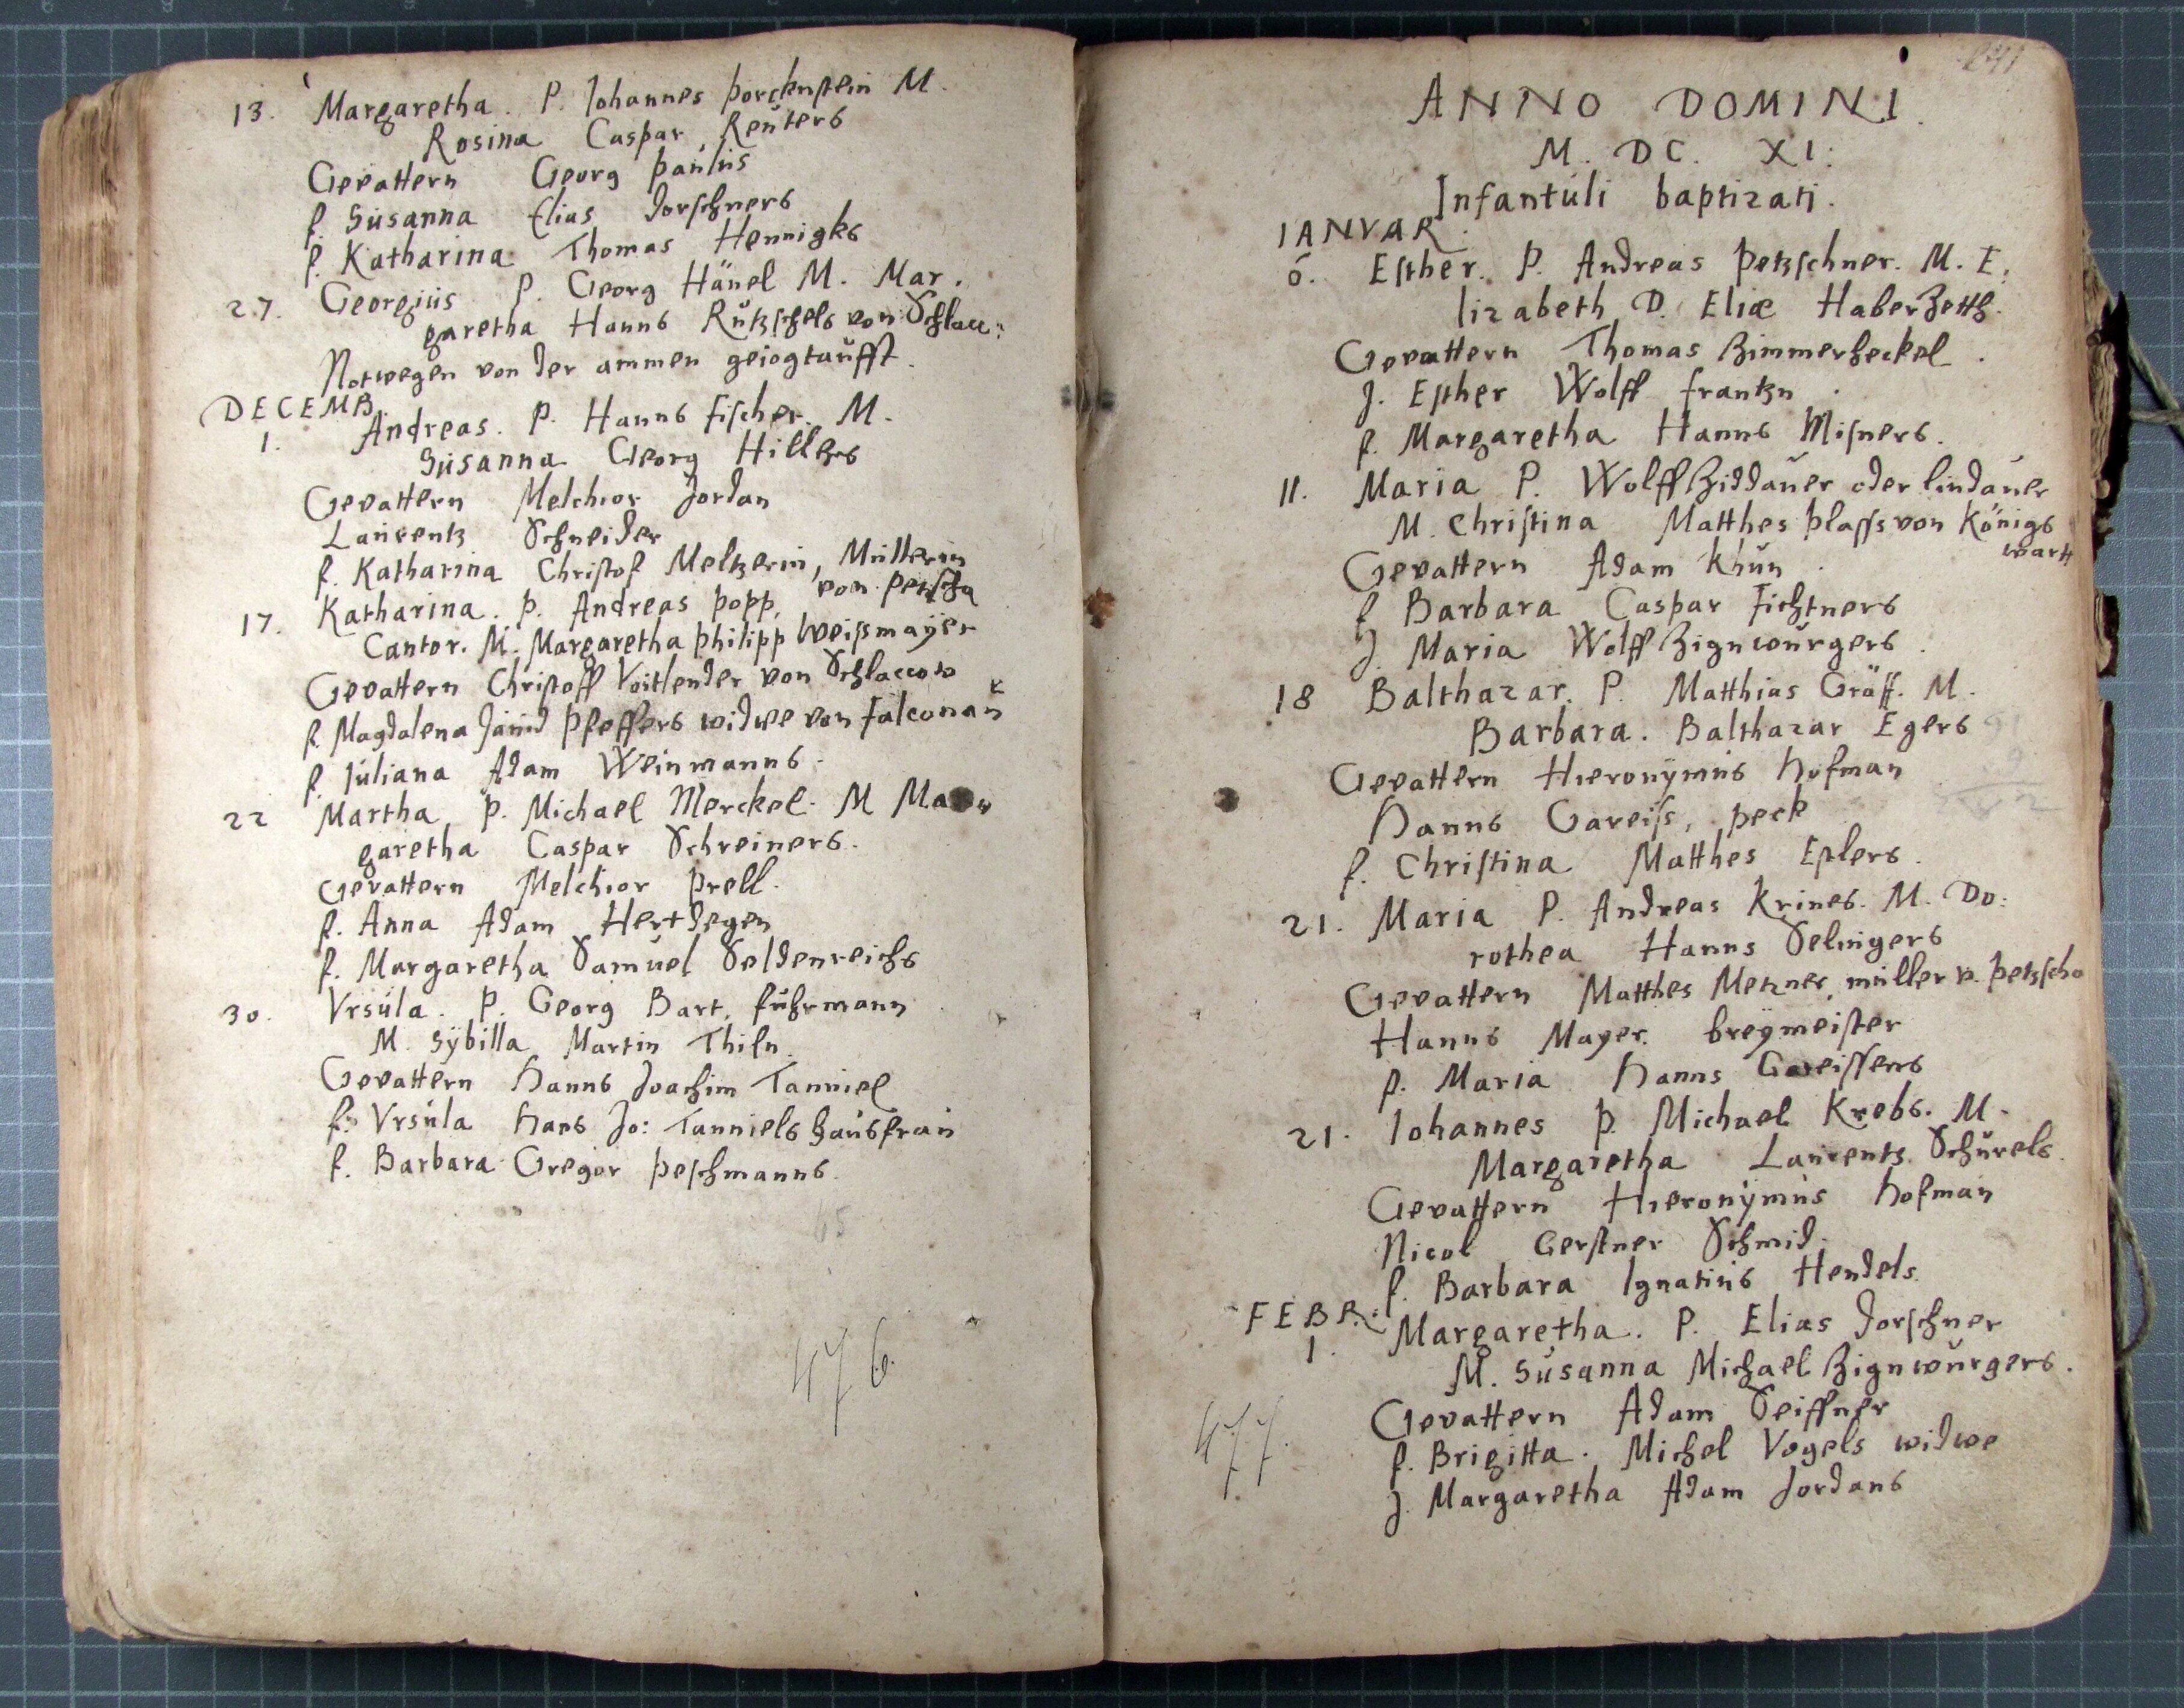 13. Margaretha. P. Johannes Porcknstein M.
Rosina Caspar Reüters
Gevattern Georg Paülus
f. Süsanna Elias Dorschners
f. Katharina Thomas Hennigks
27. Georgius P. Georg Hänel M. Mar.
garetha Hanns Rützschels von Schlacc:
Notwegen von der ammen geiogtaüfft.
DECEMB.
1. Andreas. P. Hanns Fischer. M.
Süsanna Georg Hillers
Gevattern Melchior Jordan
Laürentz Schneider
f. Katharina Christof Meltzerin, Müllerin
von Petscha
17. Katharina. P. Andreas Popp,
Cantor. M. Margaretha Philipp Weissmaÿer
Gevattern Christoff Voitlender von Schlaccow
f. Magdalena David Pfeffers widwe von Falconaü
f. Jüliana Adam Weinmanns.
22 Martha P. Michael Merckel. M
garetha Caspar Schreiners.
Gevattern Melchior Prell.
f. Anna Adam Hertdegen
f. Margaretha Samüel Seldenreichs
30. Vrsüla. P. Georg Bart, fuhrmann
M. Sÿbilla Martin Thiln.
Gevattern Hanns Joachim Tanniel
f. Vrsüla Hans Jo: Tanniels haüsfraü
f. Barbara Gregor Peschmanns.
65
476.
241
ANNO DOMINI.
M. DC. XI:
Infantüli baptizati.
IANVAR.
6. Esther. P. Andreas Petzschner. M. E:
lizabeth D. Eliæ Haberzetth.
Gevattern Thomas Zimmerheckel.
J. Esther Wolff Frantzn.
f. Margaretha Hanns Misners.
11. Maria P. Wolff Ziddaüer oder Lindaüer
M. Christina Matthes Plasss von Königs
wart
Gevattern Adam Khün.
f Barbara Caspar Fichtners
J. Maria Wolff Zignwürgers.
18 Balthazar. P. Matthias Gräff. M.
Barbara. Balthazar Egers
Gevattern Hieronÿmüs Hofman
Hanns Gareiss, Peck
f. Christina Matthes Eplers.
21. Maria P. Andreas Krines. M. Do:
rothea Hanns Selingers
Gevattern Matthes Metzner, müller v. Petzscha
Hanns Mayer. breÿmeister
f. Maria Hanns Gareissens
21. Johannes P. Michael Krebs. M.
Margaretha Laürents Schürels.
Gevattern Hieronÿmüs Hofman
Nicol Gerstner Schmid.
f. Barbara Ignatiüs Hendels
FEBR.
1. Margaretha. P. Elias Dorschner
M. Süsanna Michael Zignwürgers.
Gevattern Adam Seiffner
f. Brigitta. Michel Vogels widwe
J. Margaretha Adam Jordans
477.